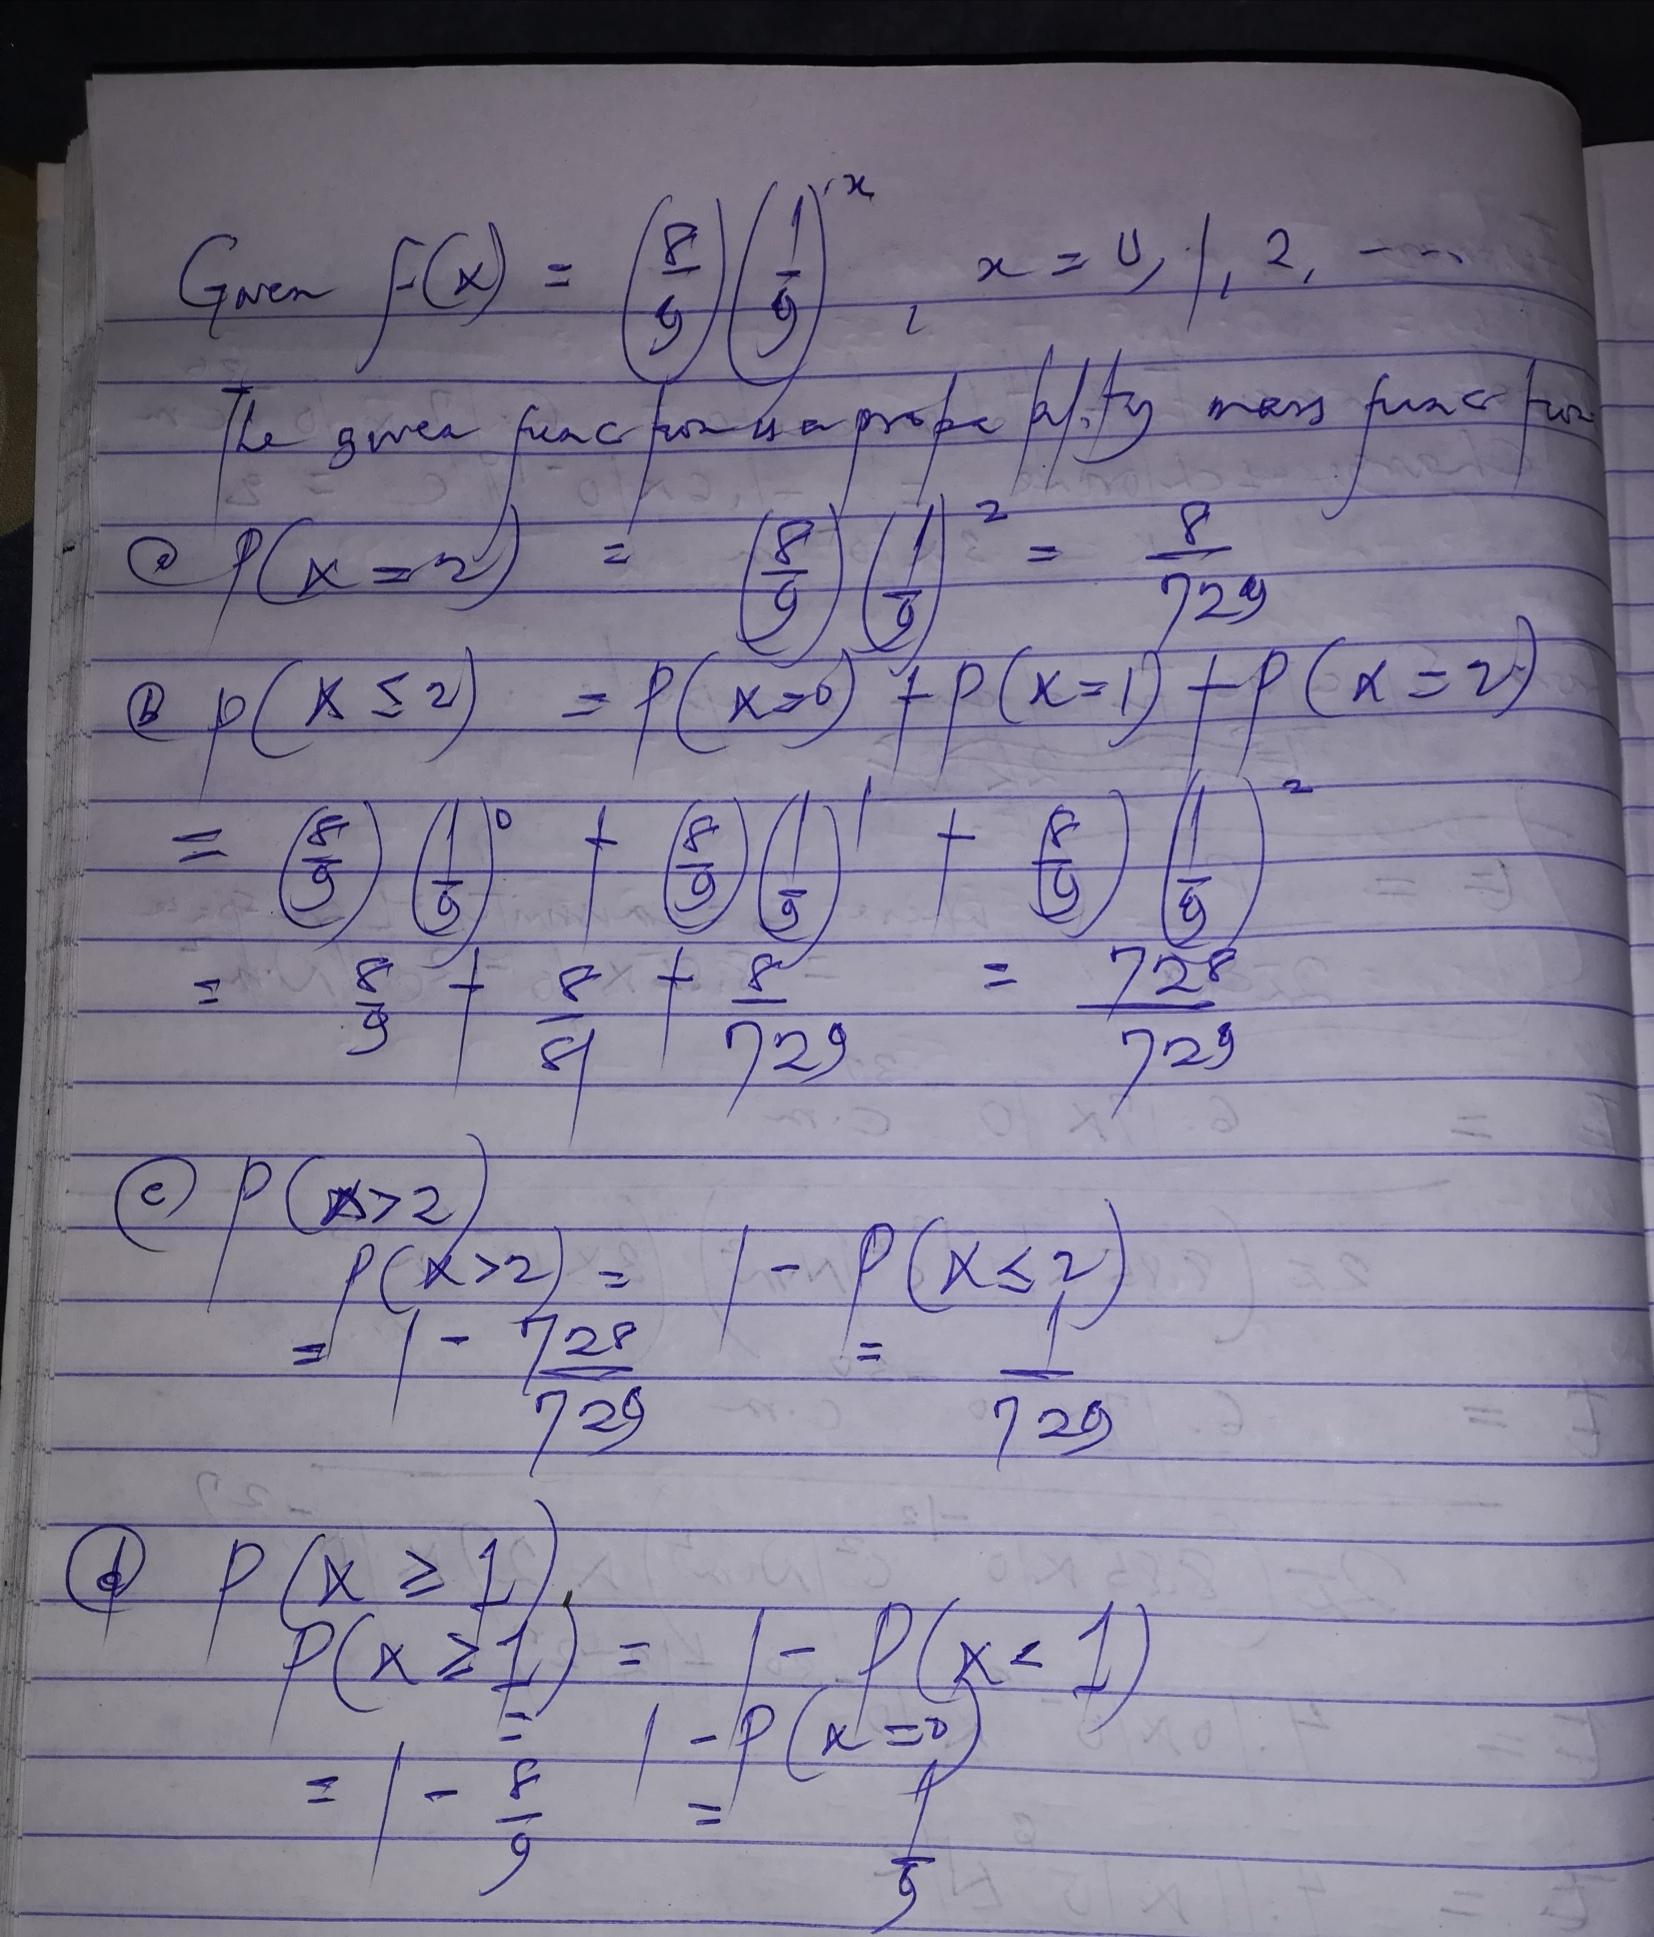 Given f(x) = (8/9)(1/9)^x, x = 0, 1, 2, ----
The given function is a probability mass function
ⓐ P(X=2) = (8/9)(1/9)^2 = 8/729
ⓑ P(X≤2) = P(X=0) + P(X=1) + P(X=2)
= (8/9)(1/9)^0 + (8/9)(1/9)^1 + (8/9)(1/9)^2
= 8/9 + 8/81 + 8/729 = 728/729
ⓒ P(X>2)
P(X>2) = 1 - P(X≤2)
= 1 - 728/729 = 1/729
ⓓ P(X≥1).
P(X≥1) = 1 - P(X<1)
= 1 - P(X=0)
= 1 - 8/9 = 1/9